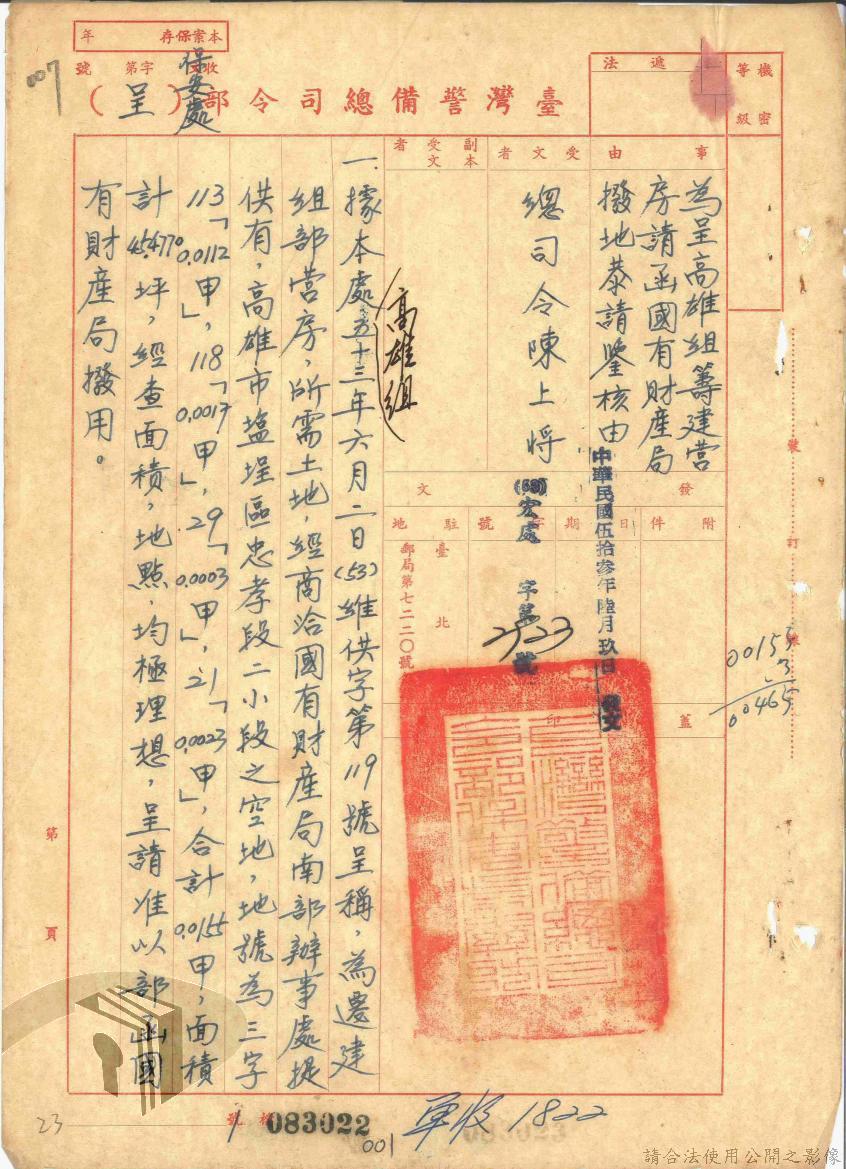 本案保存 年
收 字第 號
007
保安處
臺灣警備總司令部(呈)
機密等級
遞法
事由
為呈高雄組籌建營
房請函國有財產局
撥地恭請鑒核由
受文者
總司令陳上將
副本受文者
高雄組
發文
附件
日期
中華民國伍拾參年陸月玖日 發文
字號
(53)宏處 字第 2523 號
駐地
臺北
郵局第七二二〇號
蓋印
一、據本處五十三年六月二日(53)維供字第119號呈稱,為遷建
組部營房,所需土地,經商洽國有財產局南部辦事處提
供有,高雄市塩埕區忠孝段二小段之空地,地號為三字
113「0.0112甲」,118「0.0017甲」,29「0.0003甲」,21「0.0023甲」,合計0.0155甲,面積
計45.4770坪,經查面積,地點,均極理想,呈請准以部函國
有財產局撥用。
裝
訂
線
00155
3
00465
第 頁
23
1 號 083022
001
軍收 1822
請合法使用公開之影像